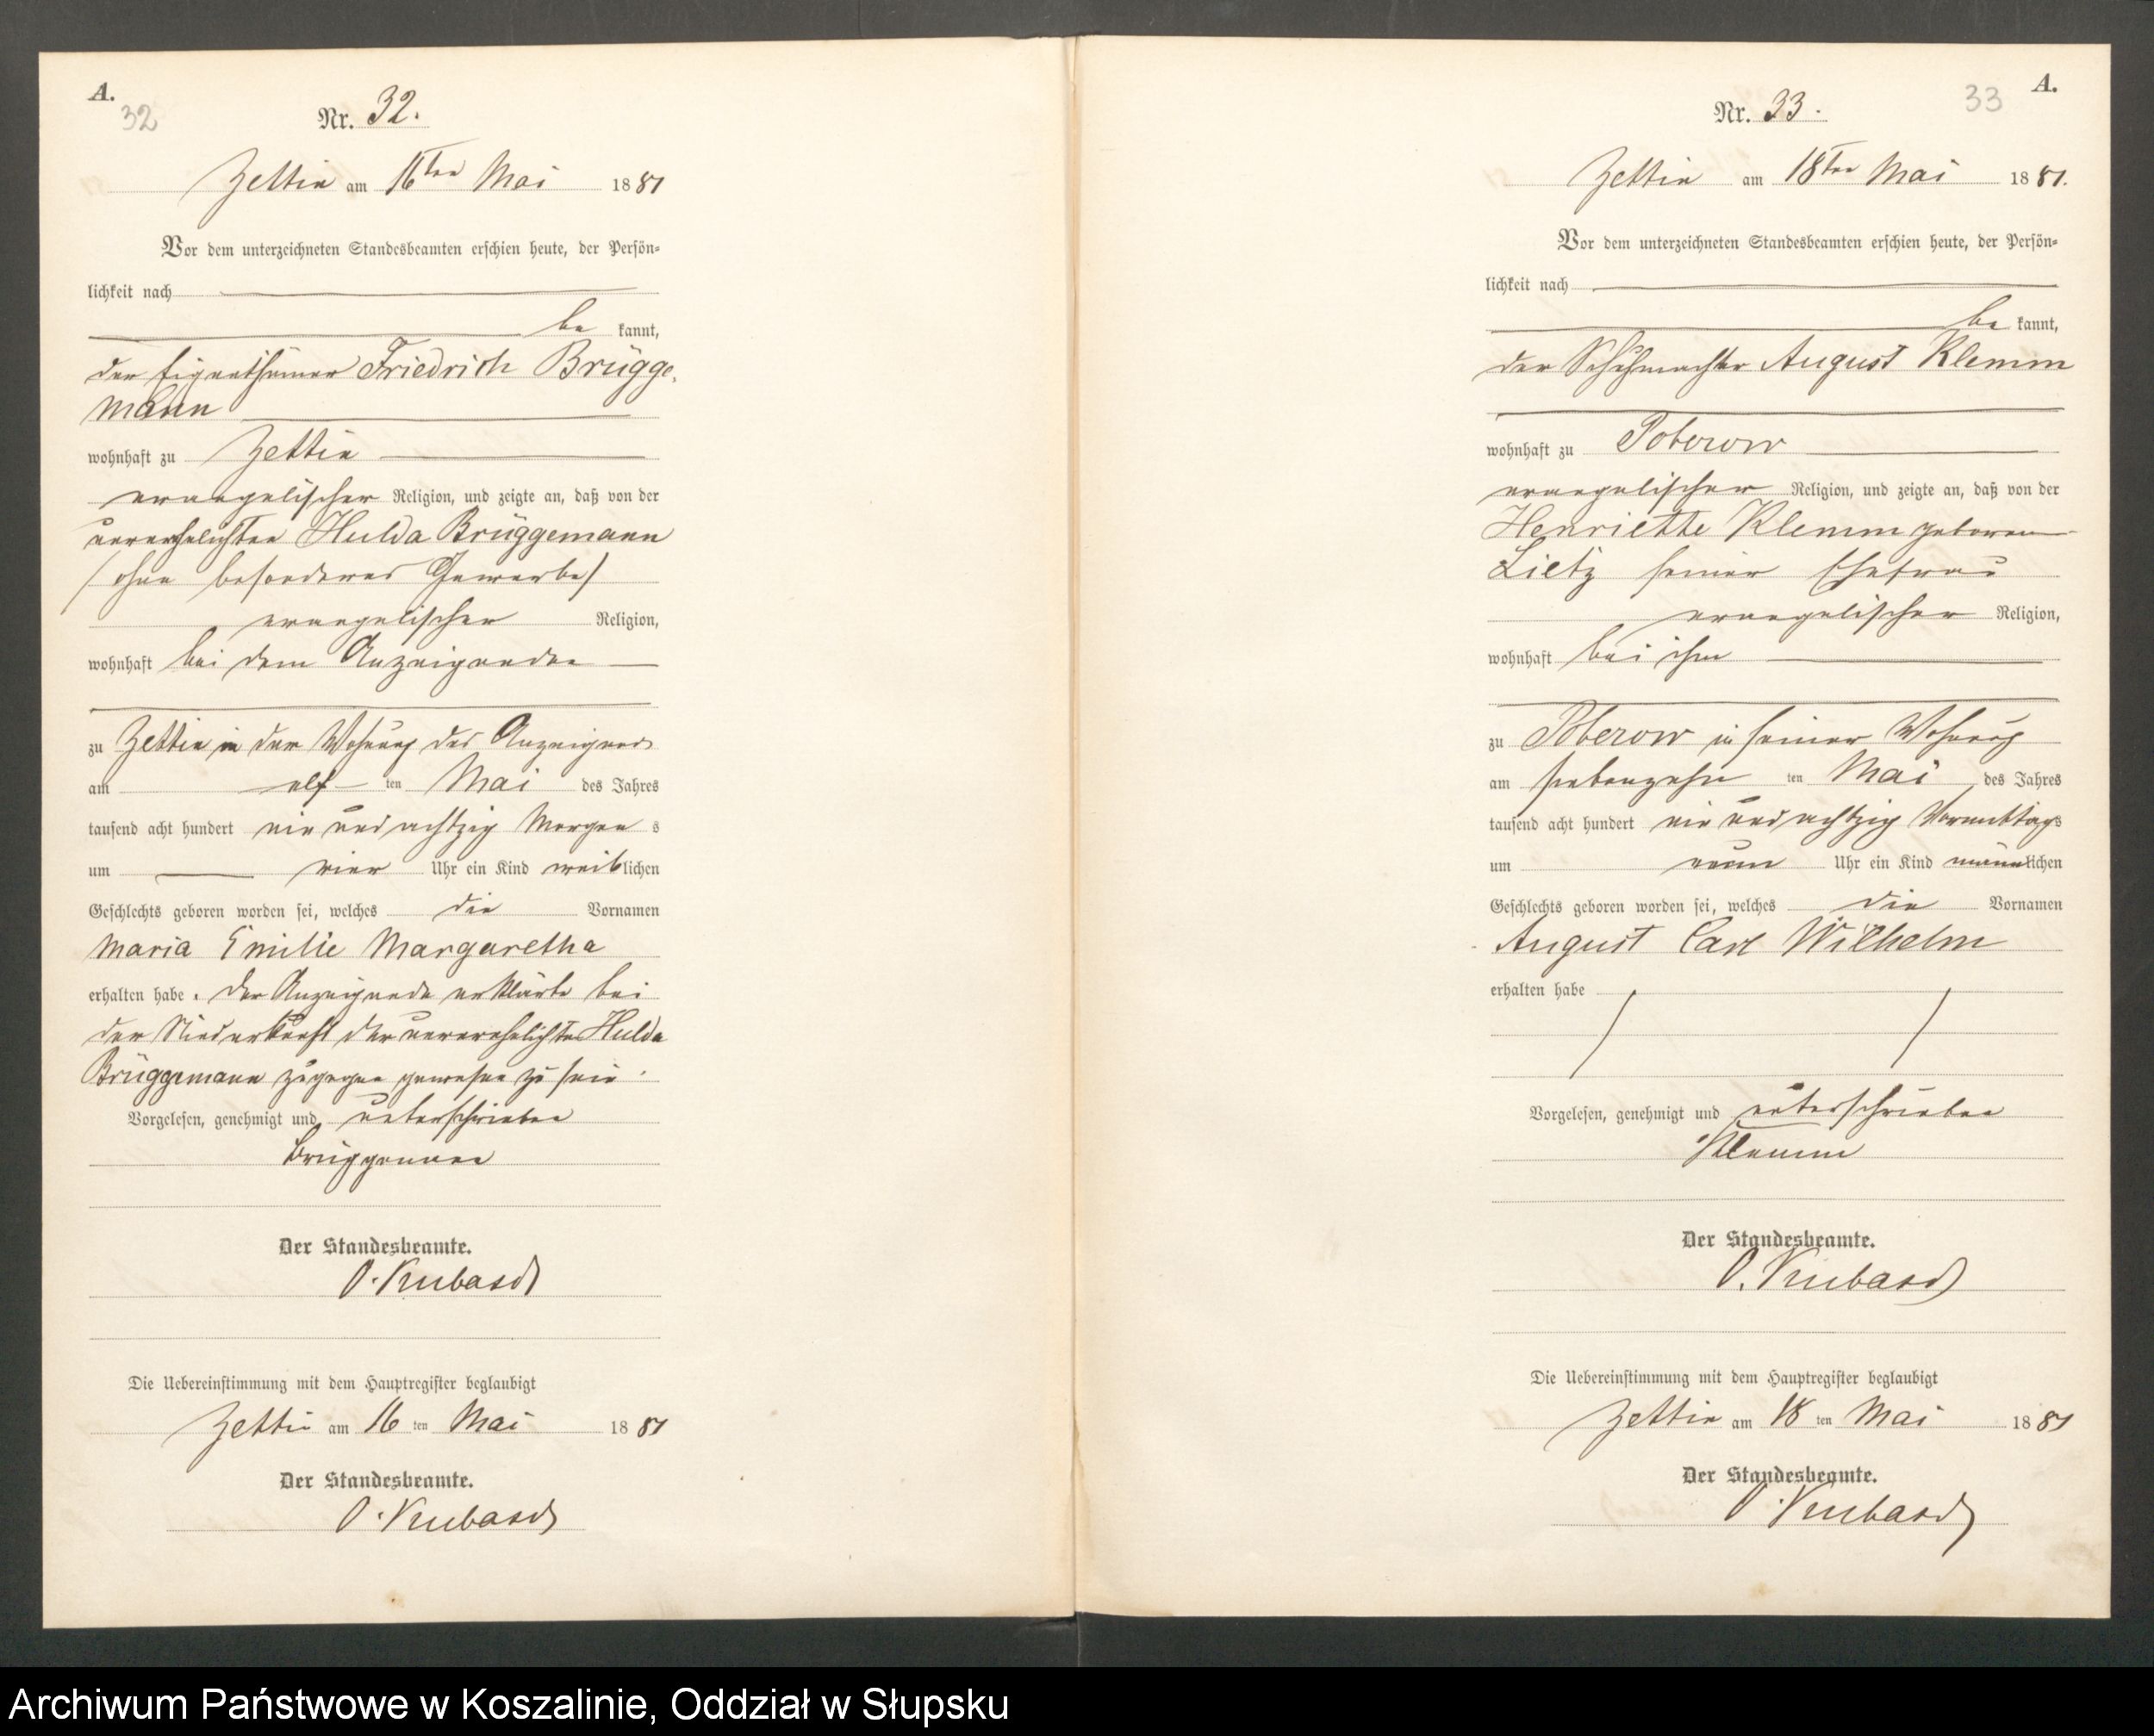 A.
32
Nr. 32.
Zettin am 16ten Mai 1881
Vor dem unterzeichneten Standesbeamten erschien heute, der Persön-
lichkeit nach
be kannt,
der Eigenthümer Friedrich Brügge-
mann
wohnhaft zu Zettin
evangelischer Religion, und zeigte an, daß von der
unverehelichten Hulda Brüggemann
(ohne besonderes Gewerbe)
evangelischer Religion,
wohnhaft bei dem Anzeigenden
zu Zettin in der Wohnung des Anzeigend
am elf ten Mai des Jahres
tausend acht hundert ein und achtzig Morgen s
um vier Uhr ein Kind weiblichen
Geschlechts geboren worden sei, welches die Vornamen
Maria Emilie Margaretha
erhalten habe. Der Anzeigende erklärte bei
der Niederkunft der unverehelichten Hulda
Brüggemann zugegen gewesen zu sein.
Vorgelesen, genehmigt und unterschrieben
Brüggemann
Der Standesbeamte.
O. Kubasch
Die Uebereinstimmung mit dem Hauptregister beglaubigt
Zettin am 16 ten Mai 1881
Der Standesbeamte.
O. Kubasch
A.
33
Nr. 33.
Zettin am 18ten Mai 1881.
Vor dem unterzeichneten Standesbeamten erschien heute, der Persön-
lichkeit nach
be kannt,
der Schuhmacher August Klemm
wohnhaft zu Poberow
evangelischer Religion, und zeigte an, daß von der
Henriette Klemm geborenen
Lietz seiner Ehefrau
evangelischer Religion,
wohnhaft bei ihm
zu Poberow in seiner Wohnung
am siebenzehn ten Mai des Jahres
tausend acht hundert ein und achtzig Vormittags
um neun Uhr ein Kind männlichen
Geschlechts geboren worden sei, welches die Vornamen
August Carl Wilhelm
erhalten habe
Vorgelesen, genehmigt und unterschrieben
Klemm
Der Standesbeamte.
O. Kubasch
Die Uebereinstimmung mit dem Hauptregister beglaubigt
Zettin am 18 ten Mai 1881
Der Standesbeamte.
O. Kubasch
Archiwum Państwowe w Koszalinie, Oddział w Słupsku